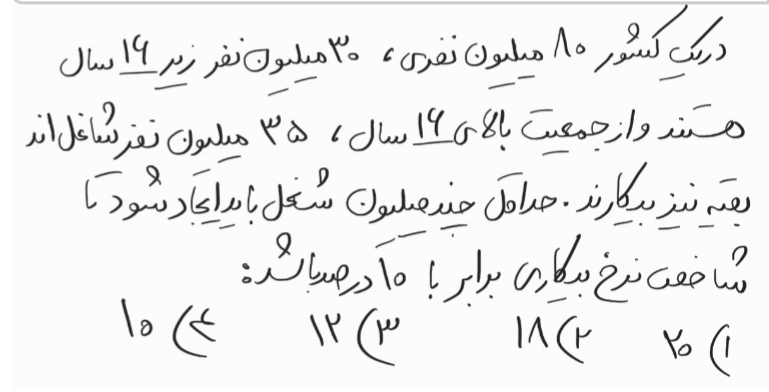 در یک کشور ۸۰ میلیون نفری، ۳۰ میلیون نفر زیر ۱۶ سال
هستند و از جمعیت بالای ۱۶ سال، ۳۵ میلیون نفر شاغل‌اند
بقیه نیز بیکارند. حداقل چند میلیون شغل باید ایجاد شود تا
شاخص نرخ بیکاری برابر با ۱۰ درصد باشد:
۱) ۲۰ ۲) ۱۸ ۳) ۱۲ ۴) ۱۰